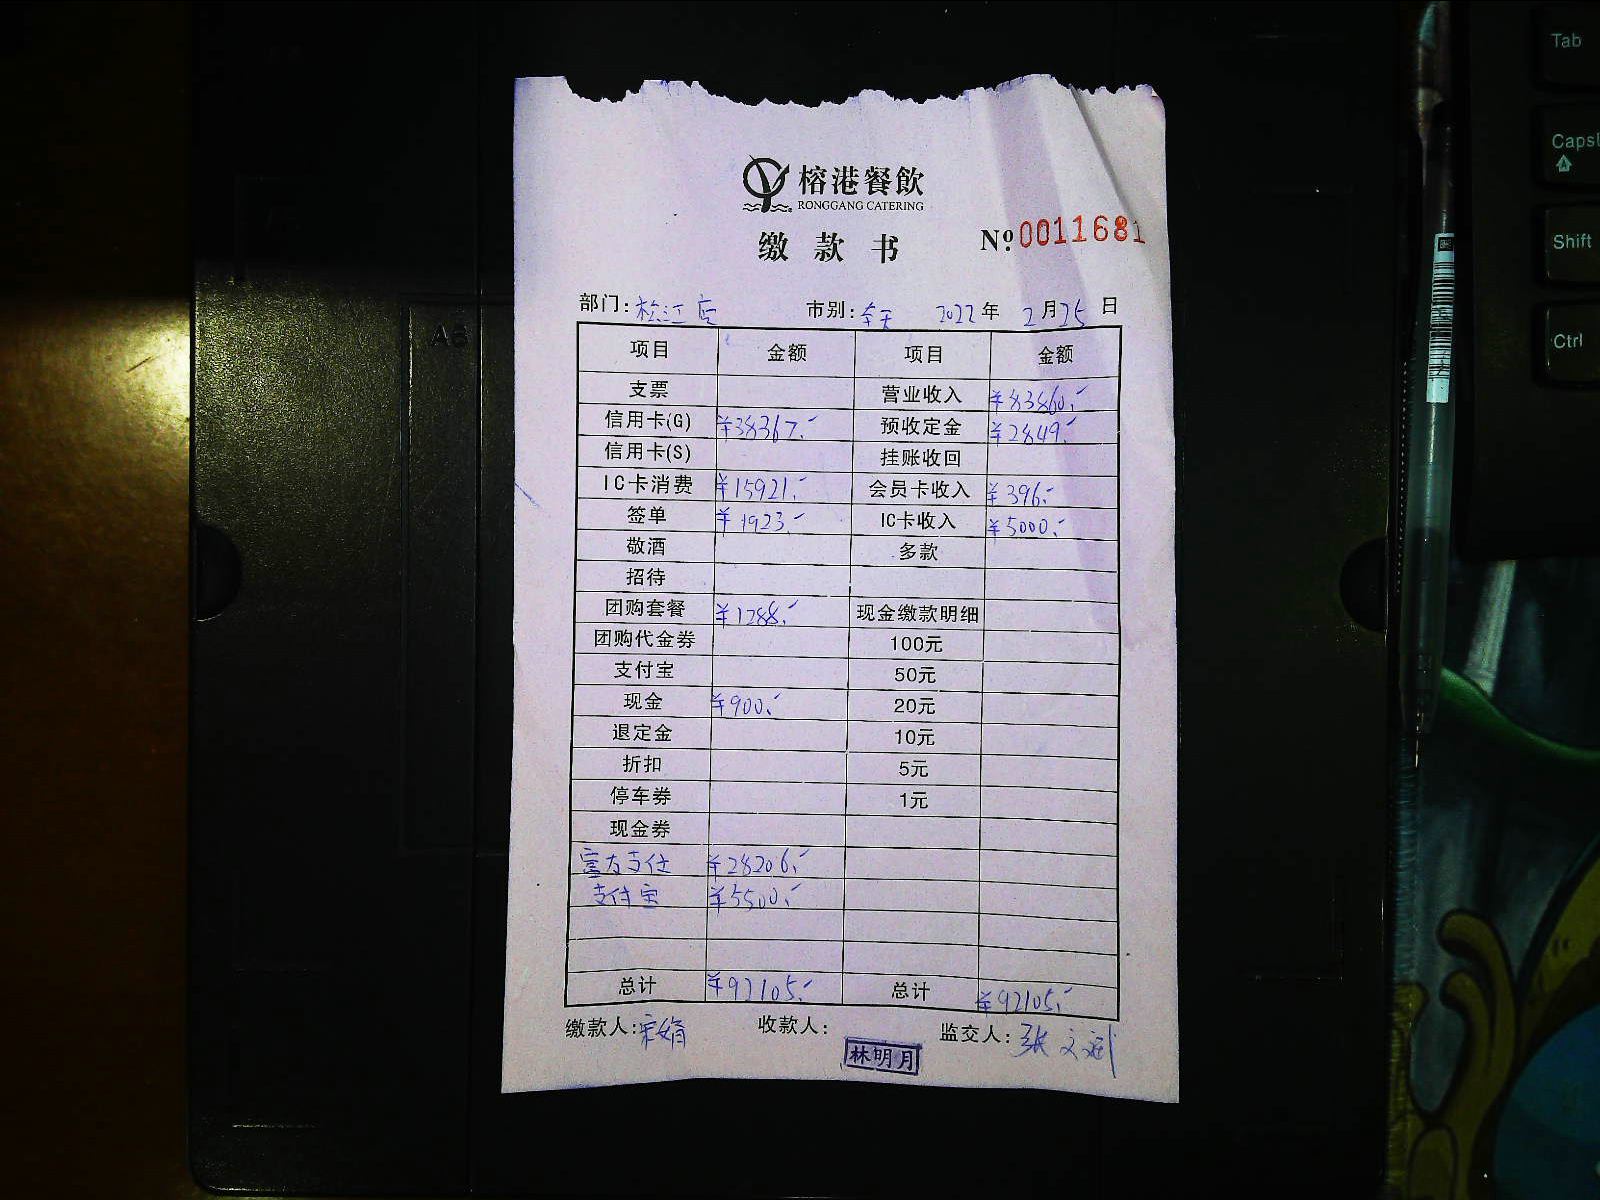 榕港餐飲
RONGGANG CATERING
缴款书 №0011681
部门:松江店 市别:全天 2022年2月25日
项目 金额 项目 金额
支票 营业收入 ¥83860.-
信用卡(G) ¥38367.- 预收定金 ¥2849.-
信用卡(S) 挂账收回
IC卡消费 ¥15921.- 会员卡收入 ¥396.-
签单 ¥1923.- IC卡收入 ¥5000.-
敬酒 多款
招待
团购套餐 ¥1288.- 现金缴款明细
团购代金券 100元
支付宝 50元
现金 ¥900.- 20元
退定金 10元
折扣 5元
停车券 1元
现金券
官方支付 ¥28206.-
支付宝 ¥5500.-
总计 ¥92105.- 总计 ¥92105.-
缴款人:宋娟 收款人: 监交人:张文斌
林明月
Tab
Caps
Shift
Ctrl